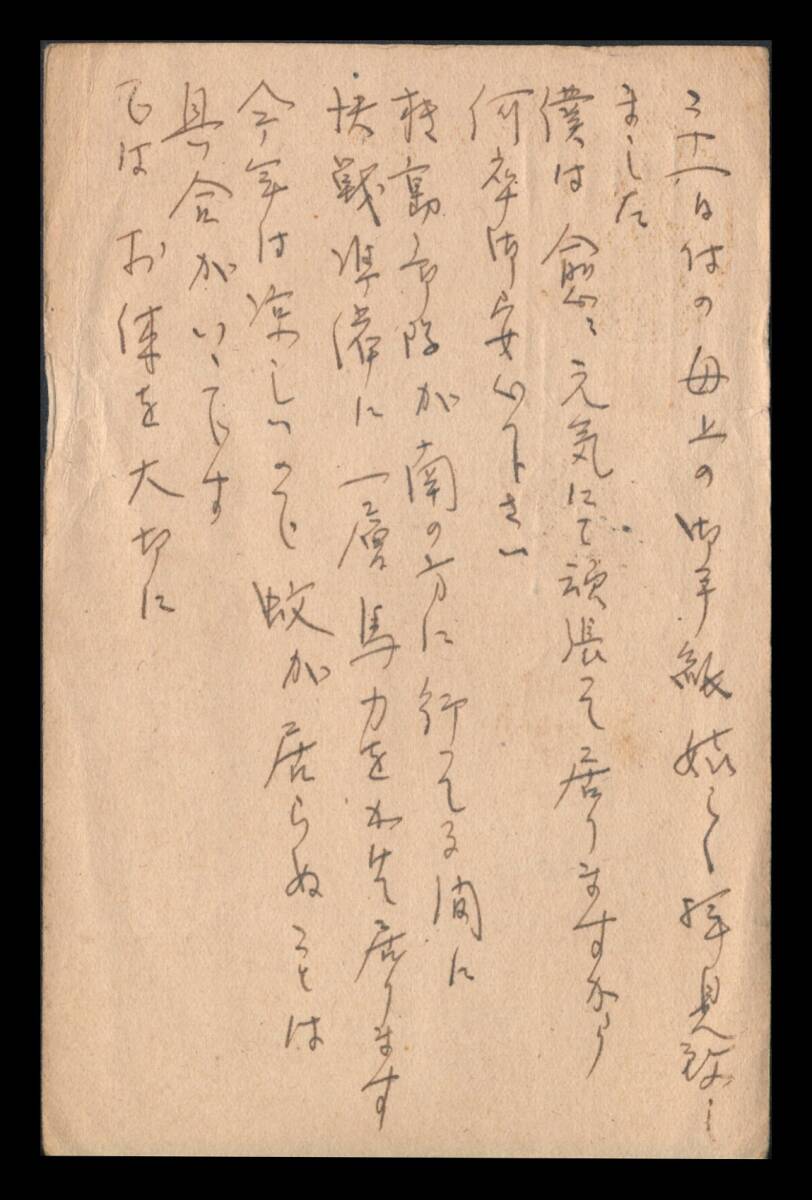 二十一日付の母上の御手紙嬉しく拝見致し
ました
僕は愈々元気にて頑張って居りますから
何卒御安心下さい
機動部隊が南の方に行ってる間に
決戦準備に一層馬力をかけて居ります
今年は涼しいので蚊が居らぬことは
具合がいゝです
ではお体を大切に